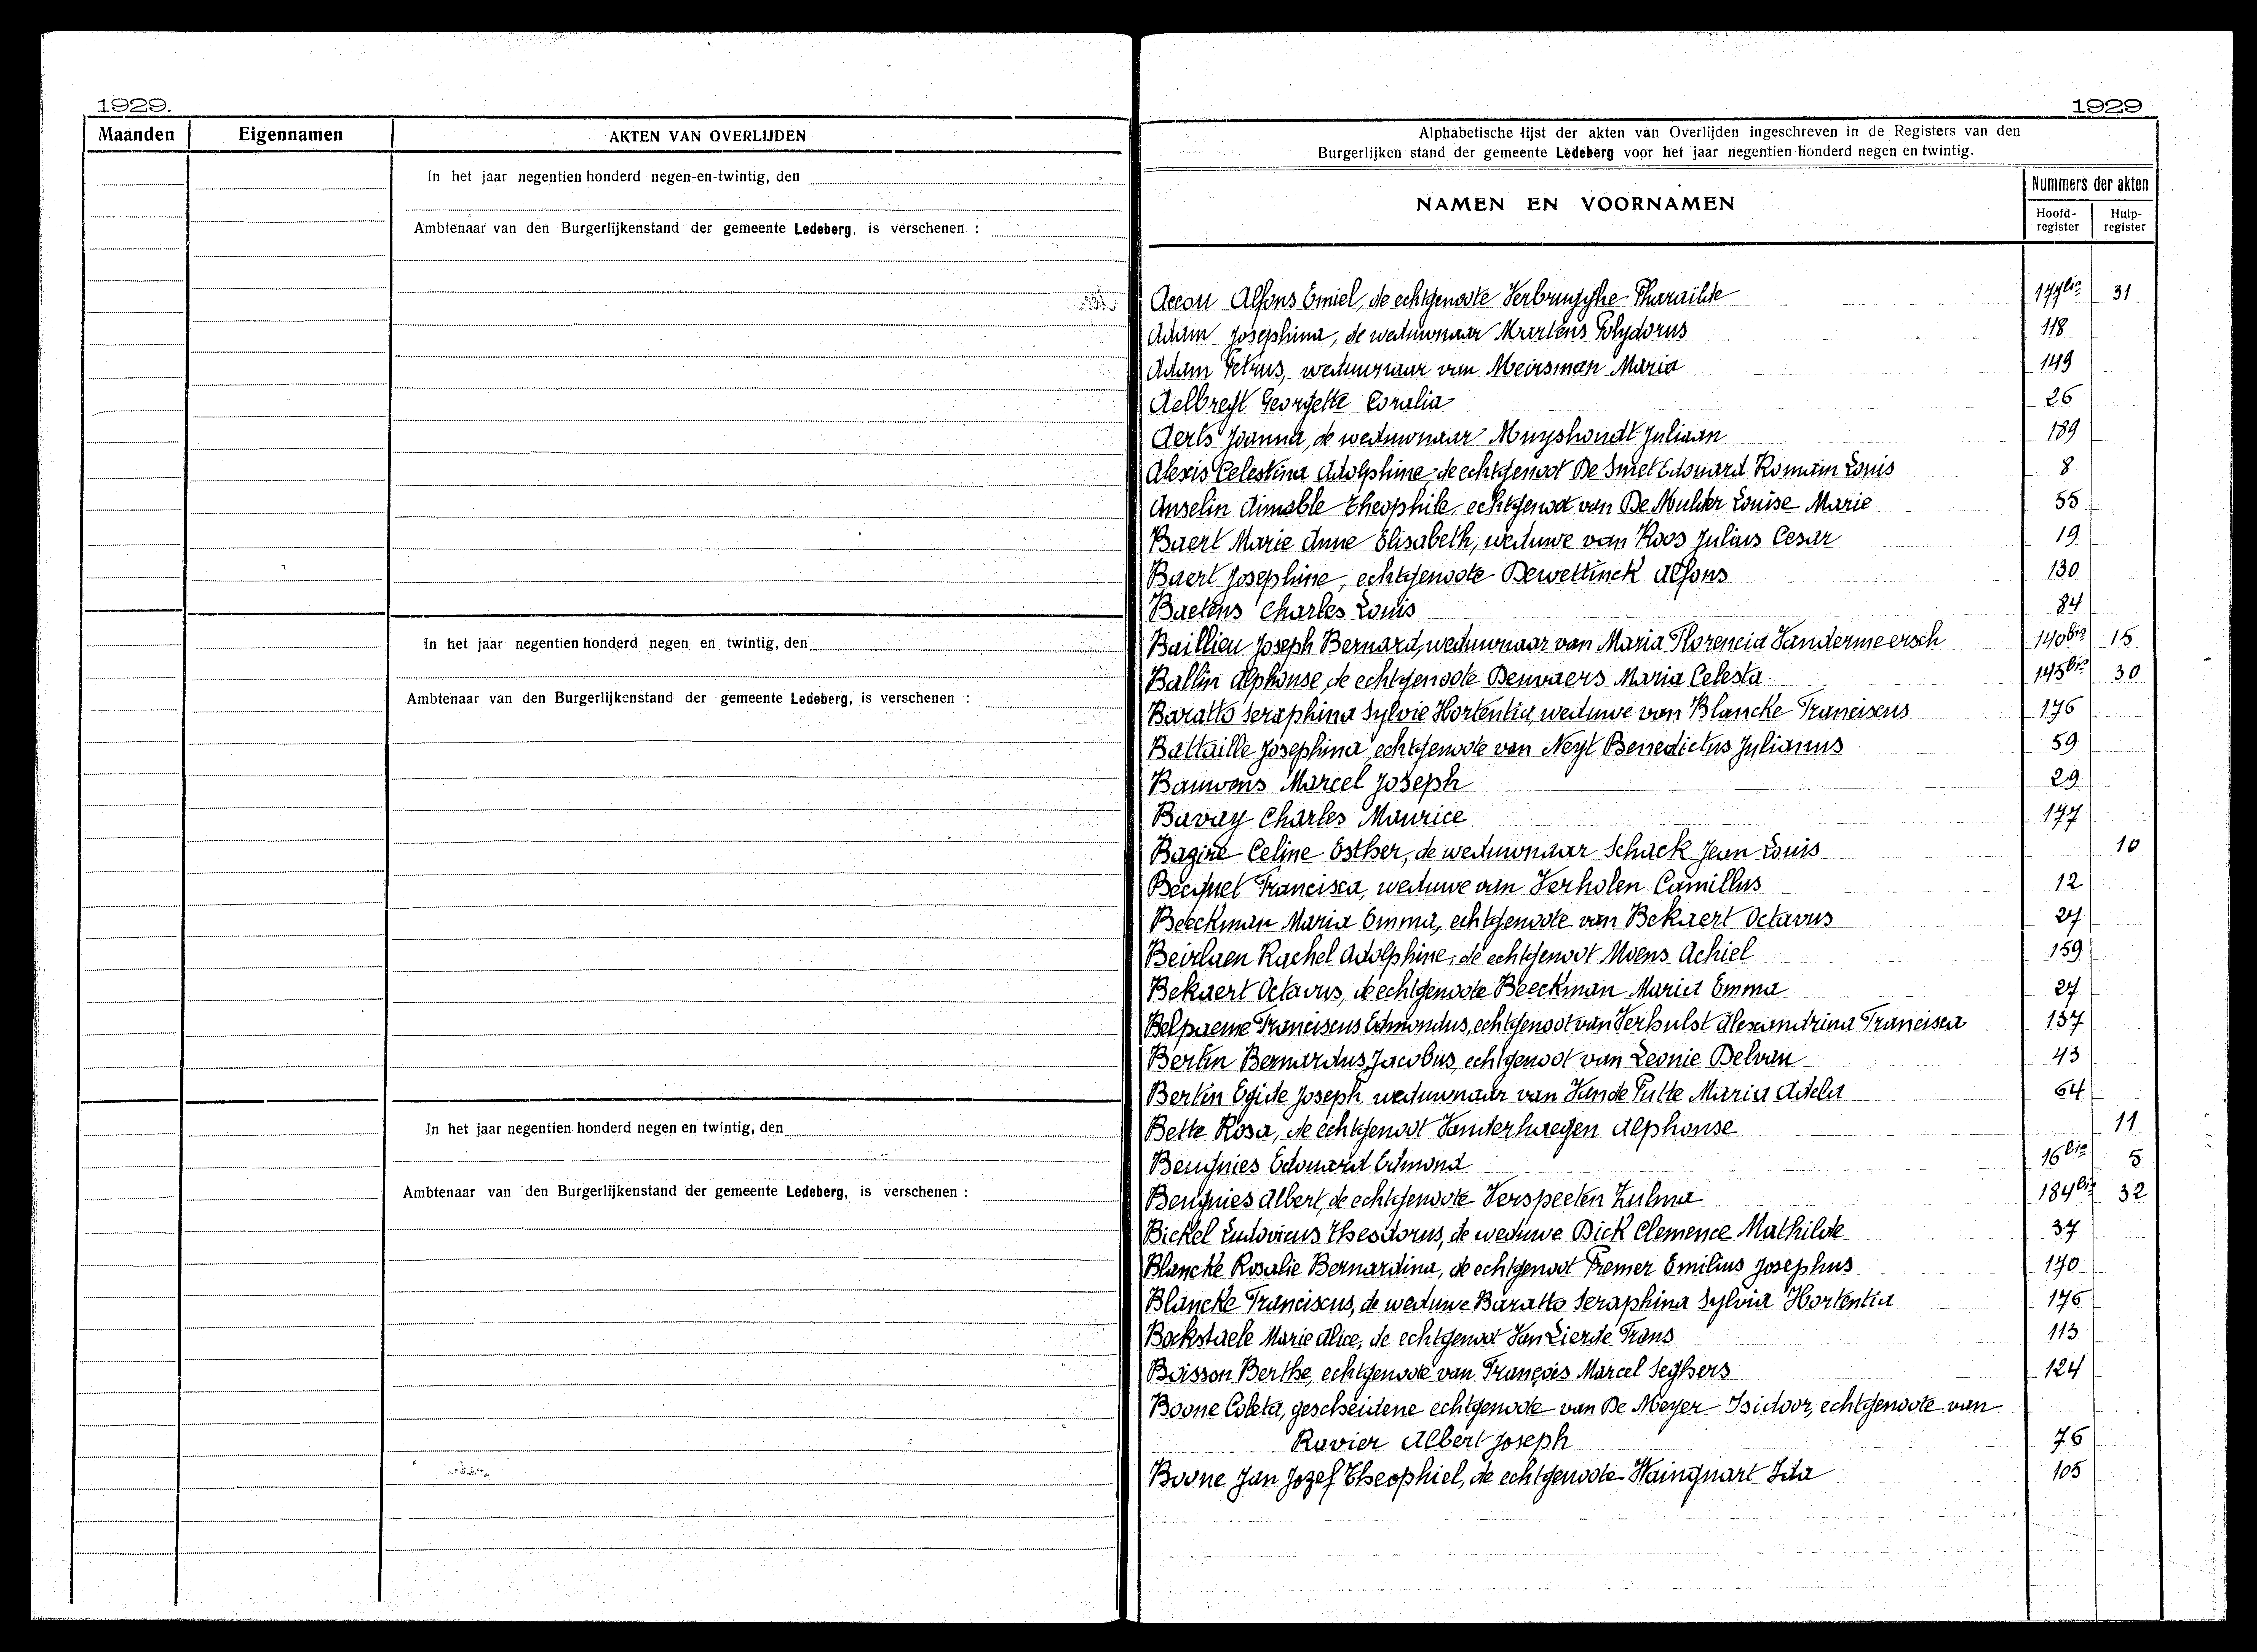 1929.
Maanden Eigennamen AKTEN VAN OVERLIJDEN
In het jaar negentien honderd negen-en-twintig, den
Ambtenaar van den Burgerlijkenstand der gemeente Ledeberg, is verschenen :
In het jaar negentien honderd negen en twintig, den
Ambtenaar van den Burgerlijkenstand der gemeente Ledeberg, is verschenen :
In het jaar negentien honderd negen en twintig, den
Ambtenaar van den Burgerlijkenstand der gemeente Ledeberg, is verschenen :
1929
Alphabetische lijst der akten van Overlijden ingeschreven in de Registers van den
Burgerlijken stand der gemeente Ledeberg voor het jaar negentien honderd negen en twintig.
NAMEN EN VOORNAMEN
Nummers der akten
Hoofd-register Hulp-register
Accou Alfons Emiel, de echtgenoote Verbrugghe Pharaïlde 177bis 31
Adam Josephina, de weduwnaar Martens Polydorus 118
Adam Petrus, weduwnaar van Meirsman Maria 149
Aelbreyt Georgette Coralia 26
Aerts Joanna, de weduwnaar Muyshondt Juliaan 189
Alexis Celestina Adolphine, de echtgenoot De Smet Edouard Romain Louis 8
Anselin Aimable Theophile, echtgenoot van De Mulder Louise Marie 55
Baert Marie Anne Elisabeth, weduwe van Roos Julius Cesar 19
Baert Josephine, echtgenoote Dewettinck Alfons 130
Baetens Charles Louis 84
Baillieu Joseph Bernard, weduwnaar van Maria Florencia Vandermeersch 140bis 15
Ballin Alphonse, de echtgenoote Beuvaers Maria Celesta 145bis 30
Baratto Seraphina Sylvie Hortentia, weduwe van Blancke Franciscus 176
Battaille Josephina echtgenoote van Neyt Benedictus Julianus 59
Bauwens Marcel Joseph 29
Bavay Charles Maurice 177
Bazire Celine Esther, de weduwnaar Schack Jean Louis 10
Becquet Francisca, weduwe van Verholen Camillus 12
Beeckman Maria Emma, echtgenoote van Bekaert Octavus 27
Beirlaen Rachel Adolphine, de echtgenoot Moens Achiel 159
Bekaert Octavus, de echtgenoote Beeckman Maria Emma 27
Belpaeme Franciscus Edmondus, echtgenoot van Verhulst Alexandrina Francisca 137
Bertin Bernardus Jacobus, echtgenoot van Leonie Delvau 43
Bertin Egide Joseph weduwnaar van Vande Putte Maria Adela 64
Bette Rosa, de echtgenoot Vanderhaegen Alphonse 11
Beugnies Edouard Edmond 16bis 5
Beugnies Albert, de echtgenoote Verspeeten Zulma 184bis 32
Bickel Ludovicus Theodorus, de weduwe Dick Clemence Mathilde 37
Blancke Rosalie Bernardina, de echtgenoot Fremer Emilius Josephus 170
Blancke Franciscus, de weduwe Baratto Seraphina Sylvia Hortentia 176
Bockstaele Marie Alice, de echtgenoot Van Lierde Frans 113
Boisson Berthe, echtgenoote van François Marcel Seghers 124
Boone Coleta, gescheidene echtgenoote van De Meyer Isidoor, echtgenoote van
Ravier Albert Joseph 76
Boone Jan Jozef Theophiel, de echtgenoote Wainquart Ida 105